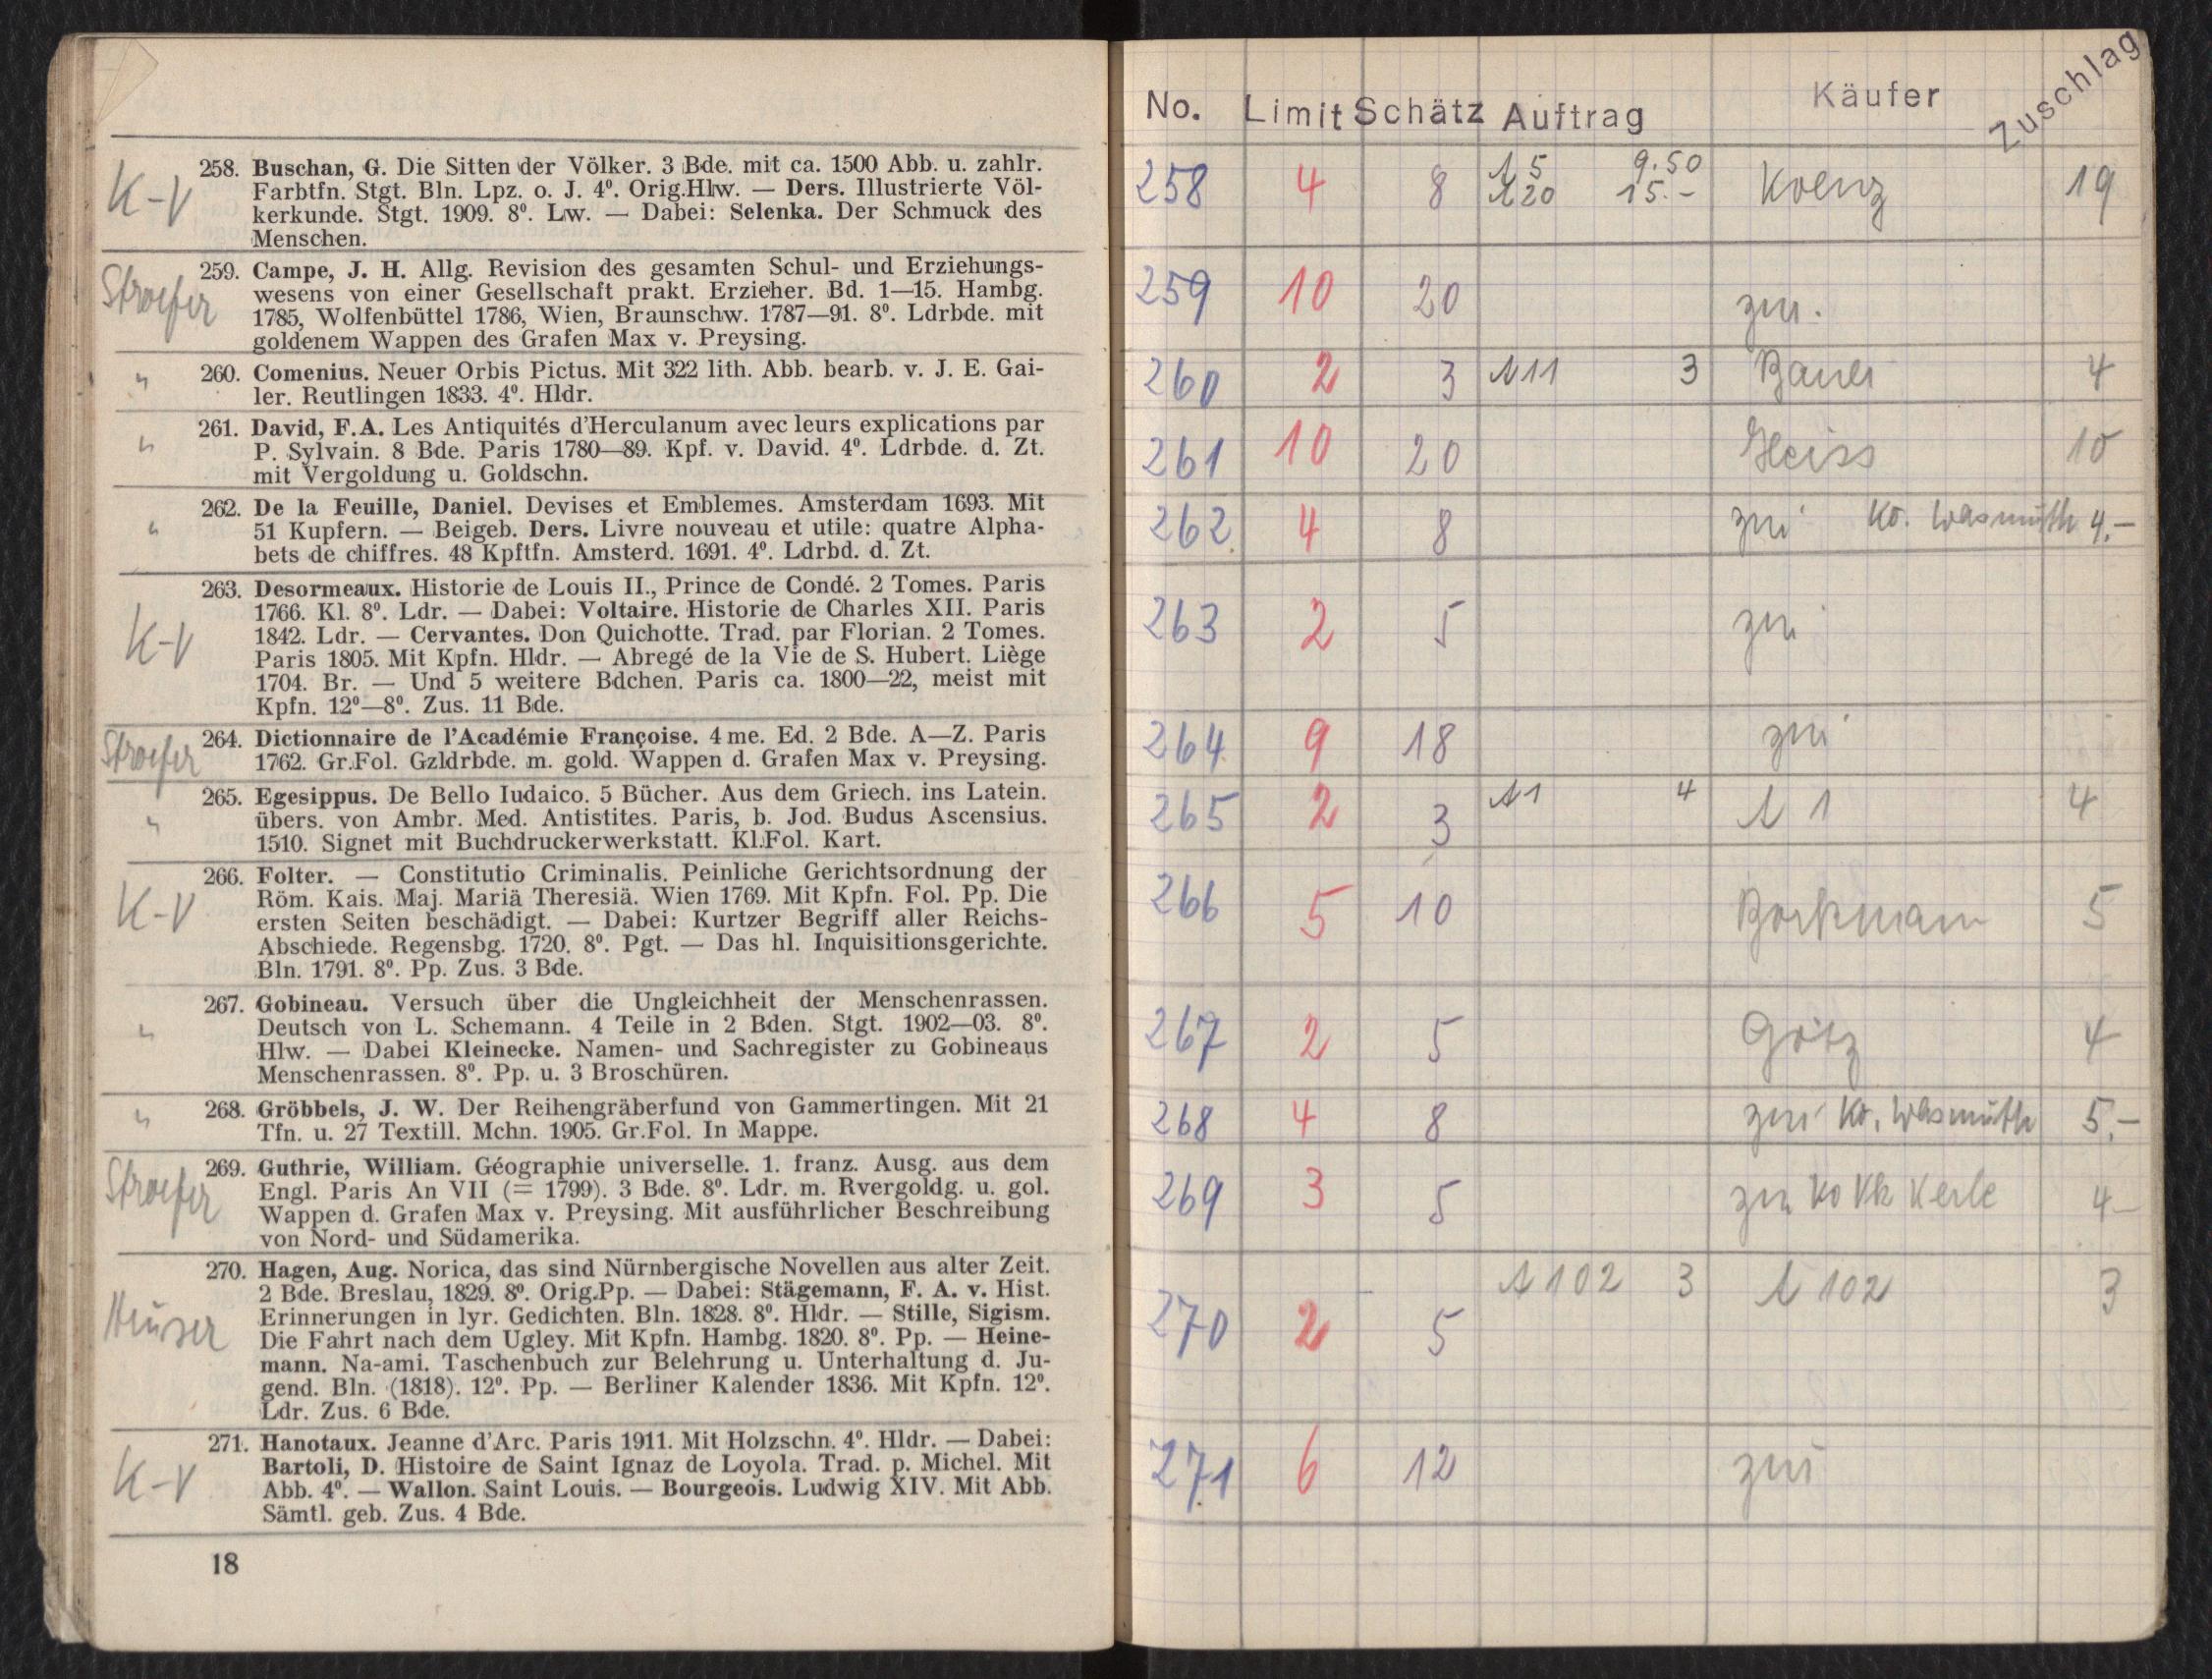 K-V
258. Buschan, G. Die Sitten der Völker. 3 Bde. mit ca. 1500 Abb. u. zahlr.
Farbtfn. Stgt. Bln. Lpz. o. J. 4⁰. Orig.Hlw. — Ders. Illustrierte Völ-
kerkunde. Stgt. 1909. 8⁰. Lw. — Dabei: Selenka. Der Schmuck des
Menschen.
Stroefer
259. Campe, J. H. Allg. Revision des gesamten Schul- und Erziehungs-
wesens von einer Gesellschaft prakt. Erzieher. Bd. 1—15. Hambg.
1785, Wolfenbüttel 1786, Wien, Braunschw. 1787—91. 8⁰. Ldrbde. mit
goldenem Wappen des Grafen Max v. Preysing.
"
260. Comenius. Neuer Orbis Pictus. Mit 322 lith. Abb. bearb. v. J. E. Gai-
ler. Reutlingen 1833. 4⁰. Hldr.
"
261. David, F.A. Les Antiquités d'Herculanum avec leurs explications par
P. Sylvain. 8 Bde. Paris 1780—89. Kpf. v. David. 4⁰. Ldrbde. d. Zt.
mit Vergoldung u. Goldschn.
"
262. De la Feuille, Daniel. Devises et Emblemes. Amsterdam 1693. Mit
51 Kupfern. — Beigeb. Ders. Livre nouveau et utile: quatre Alpha-
bets de chiffres. 48 Kpftfn. Amsterd. 1691. 4⁰. Ldrbd. d. Zt.
K-V
263. Desormeaux. Historie de Louis II., Prince de Condé. 2 Tomes. Paris
1766. Kl. 8⁰. Ldr. — Dabei: Voltaire. Historie de Charles XII. Paris
1842. Ldr. — Cervantes. Don Quichotte. Trad. par Florian. 2 Tomes.
Paris 1805. Mit Kpfn. Hldr. — Abregé de la Vie de S. Hubert. Liège
1704. Br. — Und 5 weitere Bdchen. Paris ca. 1800—22, meist mit
Kpfn. 12⁰—8⁰. Zus. 11 Bde.
Stroefer
264. Dictionnaire de l'Académie Françoise. 4me. Ed. 2 Bde. A—Z. Paris
1762. Gr.Fol. Gzldrbde. m. gold. Wappen d. Grafen Max v. Preysing.
"
265. Egesippus. De Bello Iudaico. 5 Bücher. Aus dem Griech. ins Latein.
übers. von Ambr. Med. Antistites. Paris, b. Jod. Budus Ascensius.
1510. Signet mit Buchdruckerwerkstatt. Kl.Fol. Kart.
K-V
266. Folter. — Constitutio Criminalis. Peinliche Gerichtsordnung der
Röm. Kais. Maj. Mariä Theresiä. Wien 1769. Mit Kpfn. Fol. Pp. Die
ersten Seiten beschädigt. — Dabei: Kurtzer Begriff aller Reichs-
Abschiede. Regensbg. 1720. 8⁰. Pgt. — Das hl. Inquisitionsgerichte.
Bln. 1791. 8⁰. Pp. Zus. 3 Bde.
"
267. Gobineau. Versuch über die Ungleichheit der Menschenrassen.
Deutsch von L. Schemann. 4 Teile in 2 Bden. Stgt. 1902—03. 8⁰.
Hlw. — Dabei Kleinecke. Namen- und Sachregister zu Gobineaus
Menschenrassen. 8⁰. Pp. u. 3 Broschüren.
"
268. Gröbbels, J. W. Der Reihengräberfund von Gammertingen. Mit 21
Tfn. u. 27 Textill. Mchn. 1905. Gr.Fol. In Mappe.
Stroefer
269. Guthrie, William. Géographie universelle. 1. franz. Ausg. aus dem
Engl. Paris An VII (= 1799). 3 Bde. 8⁰. Ldr. m. Rvergoldg. u. gol.
Wappen d. Grafen Max v. Preysing. Mit ausführlicher Beschreibung
von Nord- und Südamerika.
270. Hagen, Aug. Norica, das sind Nürnbergische Novellen aus alter Zeit.
2 Bde. Breslau, 1829. 8⁰. Orig.Pp. — Dabei: Stägemann, F. A. v. Hist.
Erinnerungen in lyr. Gedichten. Bln. 1828. 8⁰. Hldr. — Stille, Sigism.
Die Fahrt nach dem Ugley. Mit Kpfn. Hambg. 1820. 8⁰. Pp. — Heine-
mann. Na-ami. Taschenbuch zur Belehrung u. Unterhaltung d. Ju-
gend. Bln. (1818). 12⁰. Pp. — Berliner Kalender 1836. Mit Kpfn. 12⁰.
Ldr. Zus. 6 Bde.
K-V
271. Hanotaux. Jeanne d'Arc. Paris 1911. Mit Holzschn. 4⁰. Hldr. — Dabei:
Bartoli, D. Histoire de Saint Ignaz de Loyola. Trad. p. Michel. Mit
Abb. 4⁰. — Wallon. Saint Louis. — Bourgeois. Ludwig XIV. Mit Abb.
Sämtl. geb. Zus. 4 Bde.
18
No. Limit Schätz Auftrag Käufer Zuschlag
258 4 8 A 5 9.50 19
A 20 15.-
259 10 20 zur.
260 2 3 A 11 3 Bauer 4
261 10 20 Heiss 10
262 4 8 zur Ko. Wasmuth 4.—
263 2 5 zur
264 9 18 zur
265 2 3 A 1 4 A 1 4
266 5 10 Borkmann 5
267 2 5 Götz 4
268 4 8 zur Ko. Wasmuth 5.—
269 3 5 zur Ko Vk Kerle 4—
270 2 5 A 102 3 A 102 3
271 6 12 zur